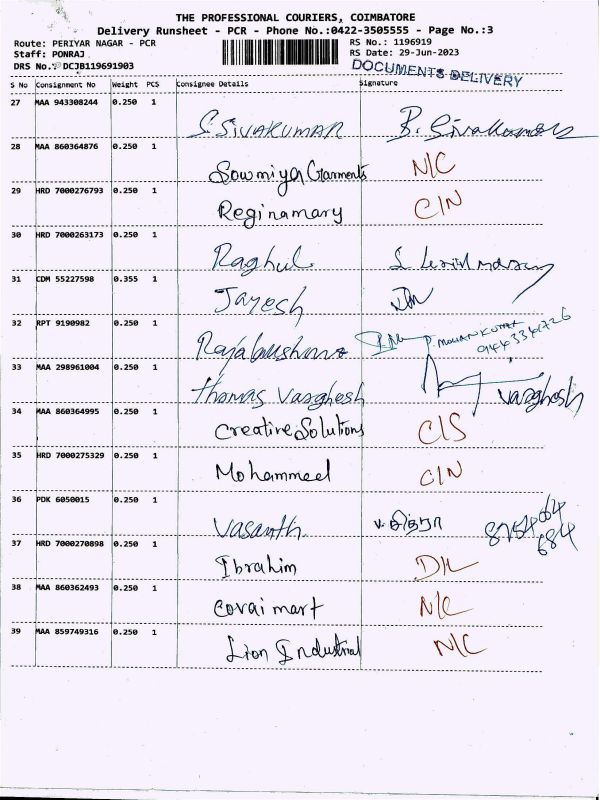 THE PROFESSIONAL COURIERS, COIMBATORE
Delivery Runsheet - PCR - Phone No.:0422-3505555 - Page No.:3
Route: PERIYAR NAGAR - PCR RS No.: 1196919
Staff: PONRAJ RS Date: 29-Jun-2023
DRS No.: DCJB119691903 DOCUMENTS DELIVERY
S No Consignment No Weight PCS Consignee Details Signature
27 MAA 943308244 0.250 1 S.SIVAKUMAR B. Sivakumar
28 MAA 860364876 0.250 1 Sowmiya Garments N/C
29 HRD 7000276793 0.250 1 Reginamary C/N
30 HRD 7000263173 0.250 1 Raghul
31 CDM 55227598 0.355 1 Jayesh
32 RPT 9190982 0.250 1 P. MOHAN KUMAR
33 MAA 298961004 0.250 1 Thomas Varghesh Varghesh
34 MAA 860364995 0.250 1 Creative Solutions C/S
35 HRD 7000275329 0.250 1 Mohammed C/N
36 PDK 6050015 0.250 1 Vasanth.
37 HRD 7000270898 0.250 1 Ibrahim D/L
38 MAA 860362493 0.250 1 Covai mart N/C
39 MAA 859749316 0.250 1 Lion Industrial N/C